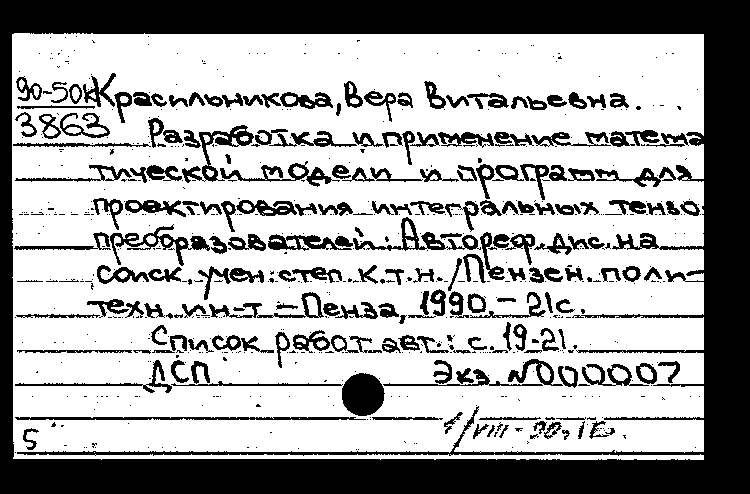 90-50к Красильникова, Вера Витальевна.
3863 Разработка и применение матема
тической модели и программ для
проектирования интегральных тензо
преобразователей: Автореф. дис. на
соиск. учен. степ. к.т.н. / Пензен. поли-
техн. ин-т – Пенза, 1990. – 21с.
Список работ авт.: с. 19-21.
ДСП. Экз. №000007
5 1/VIII-90